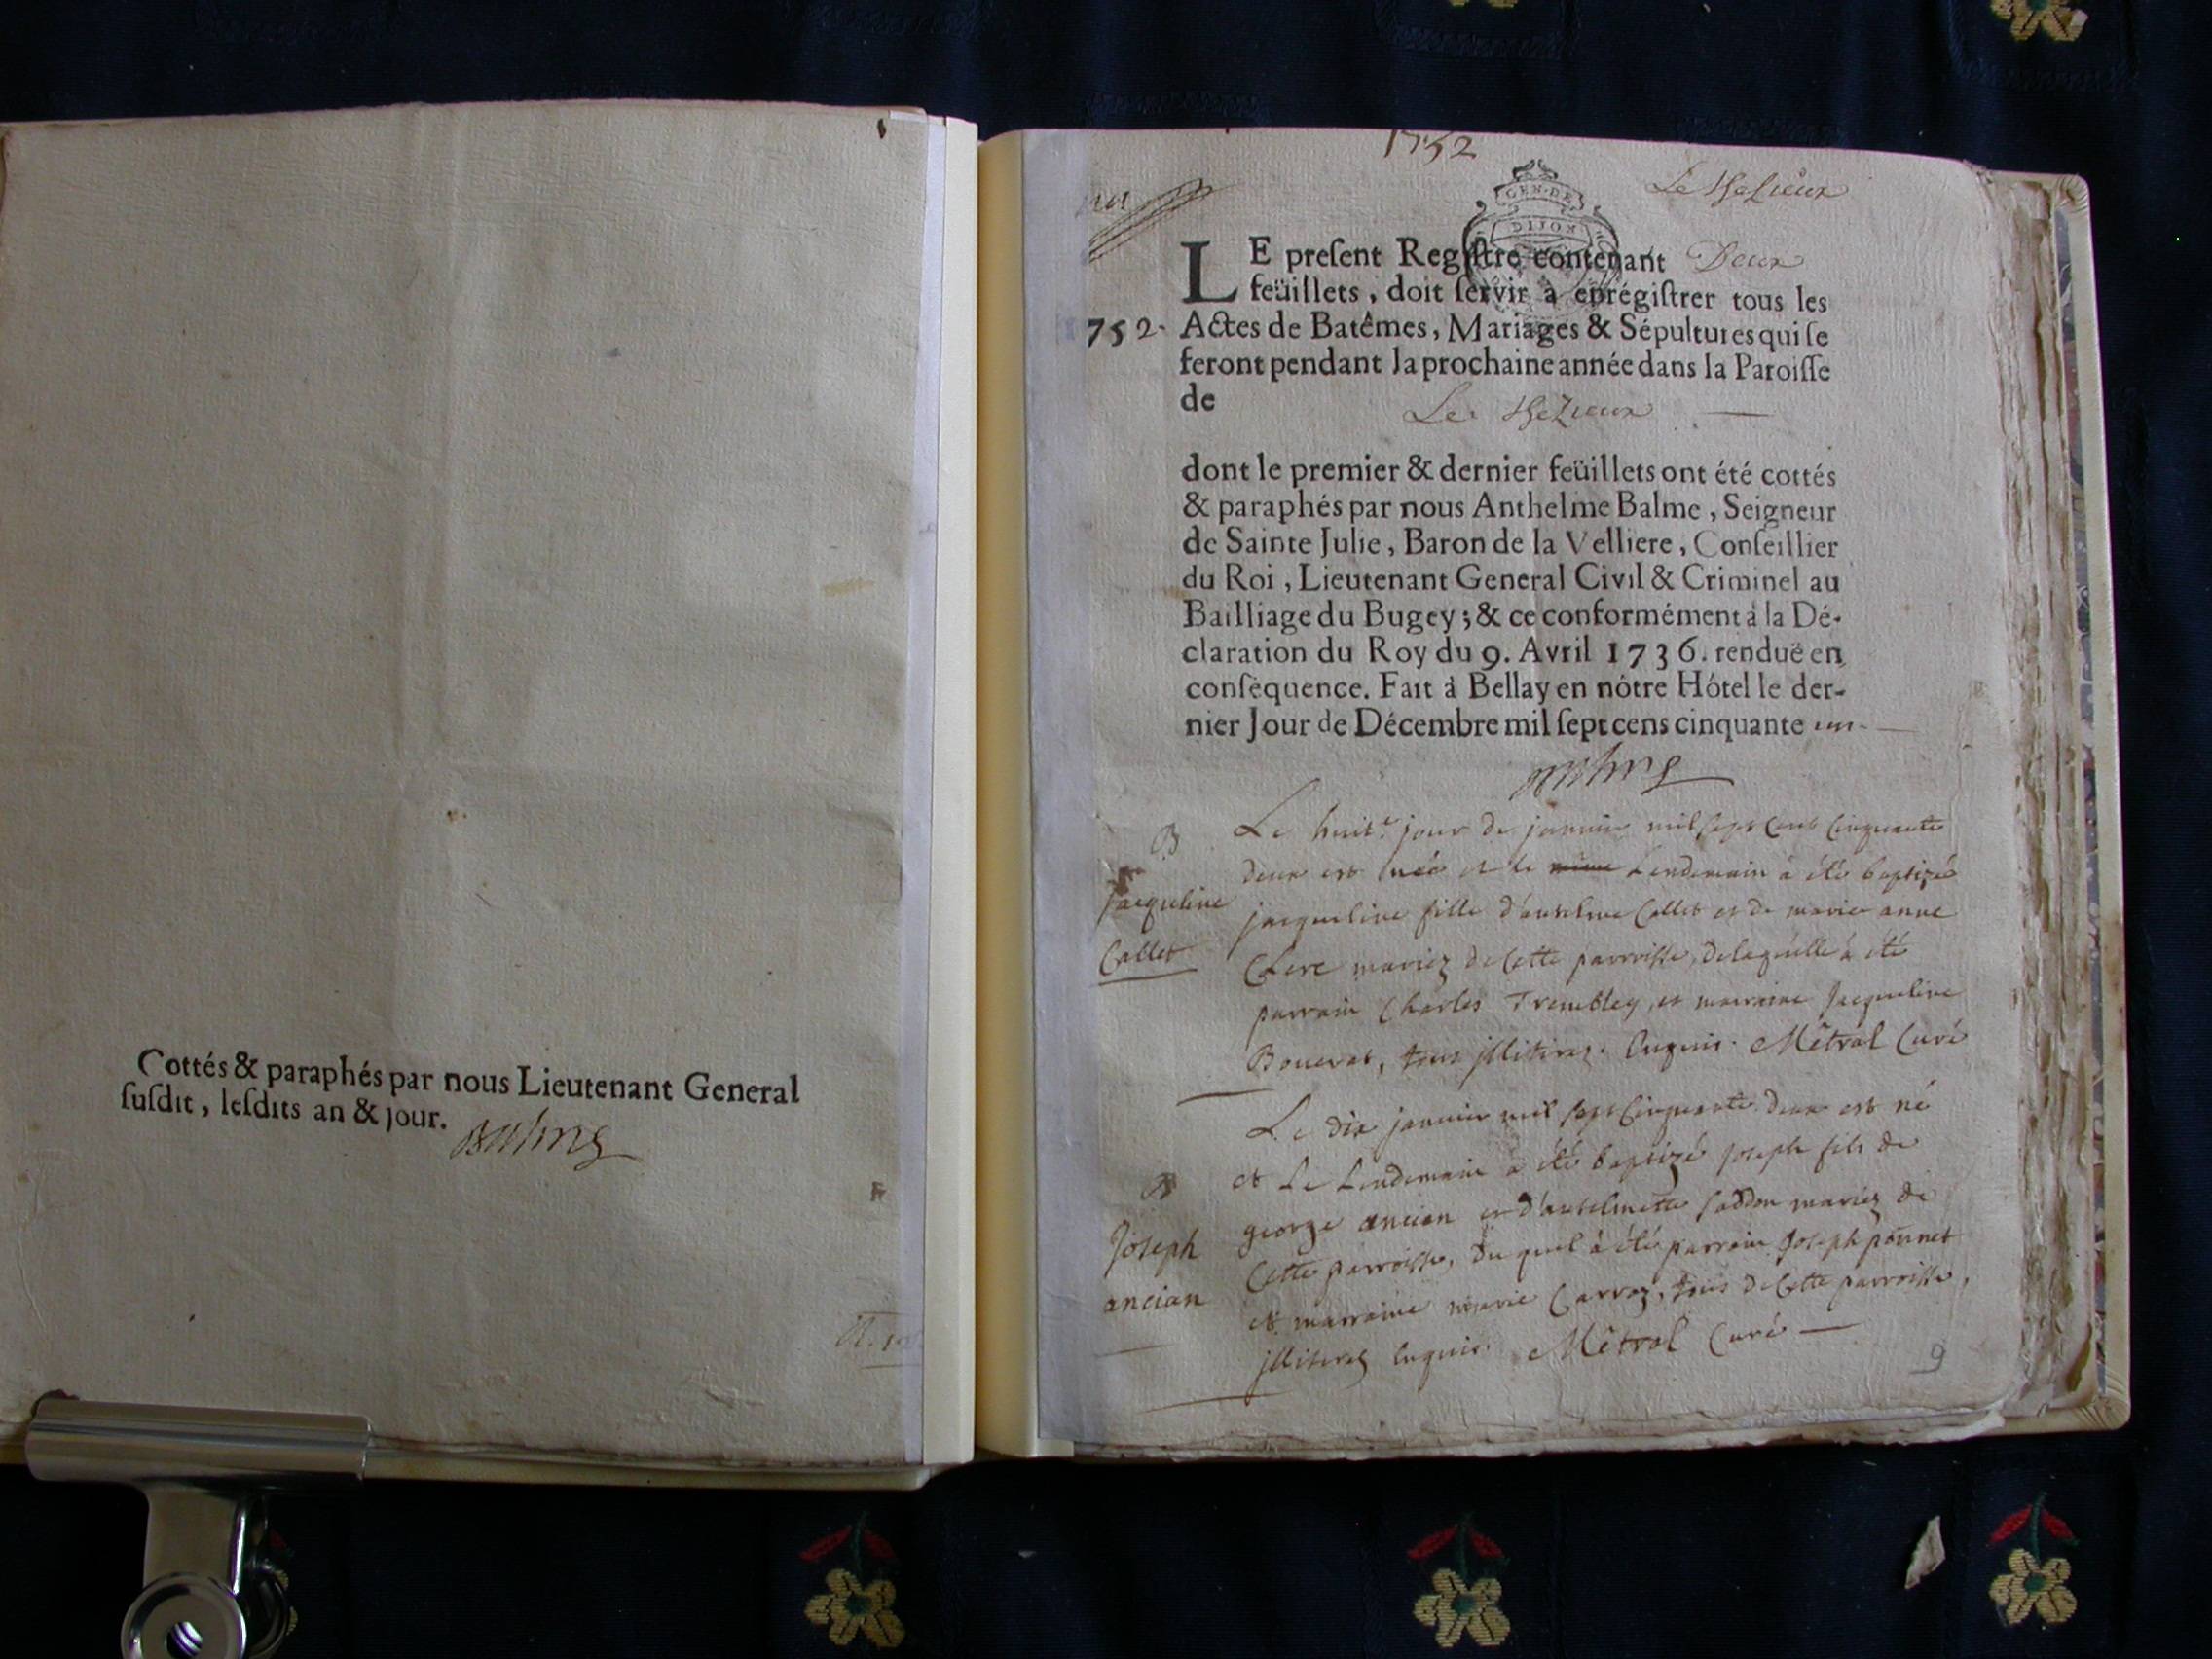 Cottés & paraphés par nous Lieutenant General
ſuſdit, leſdits an & jour.
1752
GEN·DE
DIJON
LE preſent Regiſtre contenant Deux
feüillets, doit ſervir à enrégiſtrer tous les
752. Actes de Batêmes, Mariages & Sépultures qui ſe
feront pendant la prochaine année dans la Paroiſſe
de
dont le premier & dernier feüillets ont été cottés
& paraphés par nous Anthelme Balme, Seigneur
de Sainte Julie, Baron de la Velliere, Conſeillier
du Roi, Lieutenant General Civil & Criminel au
Bailliage du Bugey; & ce conformément à la Dé-
claration du Roy du 9. Avril 1736. renduë en
conſéquence. Fait à Bellay en nôtre Hôtel le der-
nier Jour de Décembre mil ſept cens cinquante un
B
Jacqueline
Collet
Le huit.e jour de janvier mil sept cent cinquante
deux est née et le Lendemain à été baptizée
jacqueline fille d'antelme Collet et de marie anne
Clerc mariez de cette parroisse, de laquelle à été
parrain Charles Trembley, et marraine Jacqueline
Bouvrat, tous jllitirez enquis. Mêtral Curé
B
Joseph
ancian
Le dix janvier mil sept cinquante deux est né
et Le Lendemain à été baptizé joseph fils de
george ancian et d'antelmette mariez de
Cette parroisse, du quel à été parrain Joseph ponnet
et marraine marie Carroz, tous de Cette parroisse,
jllitirez enquis. Mêtral Curé
9